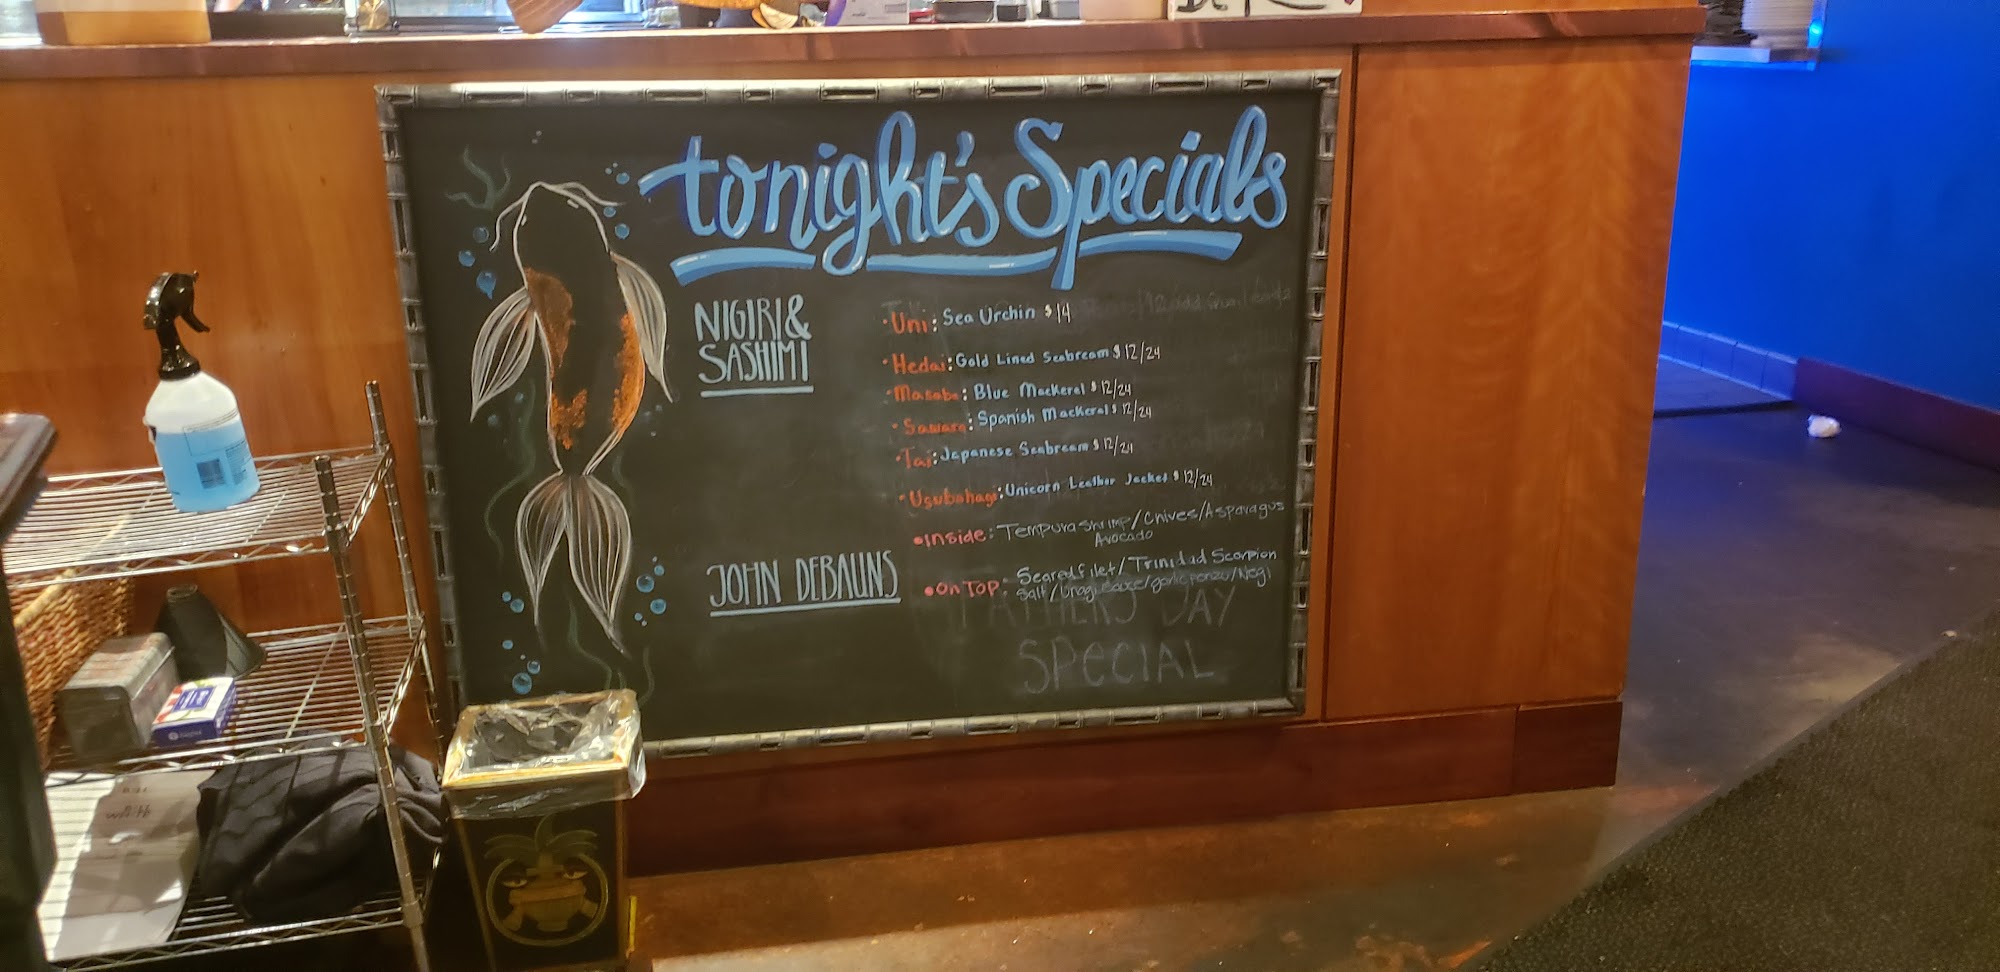 tonight's Specials
NIGIRI &
SASHIMI
• Uni: Sea Urchin $14
• Hedai: Gold Lined Seabream $12/24
• Masaba: Blue Mackerel $12/24
• Sawara: Spanish Mackeral $12/24
• Tai: Japanese Seabream $12/24
• Usubahagi: Unicorn Leather Jacket $12/24
• Inside: Tempura shrimp/Chives/Asparagus
Avocado
JOHN DEBAUNS
• On Top: Seared filet/Trinidad Scorpion
Salt/Unagi sauce/garlic ponzu/Negi
FATHERS DAY
SPECIAL